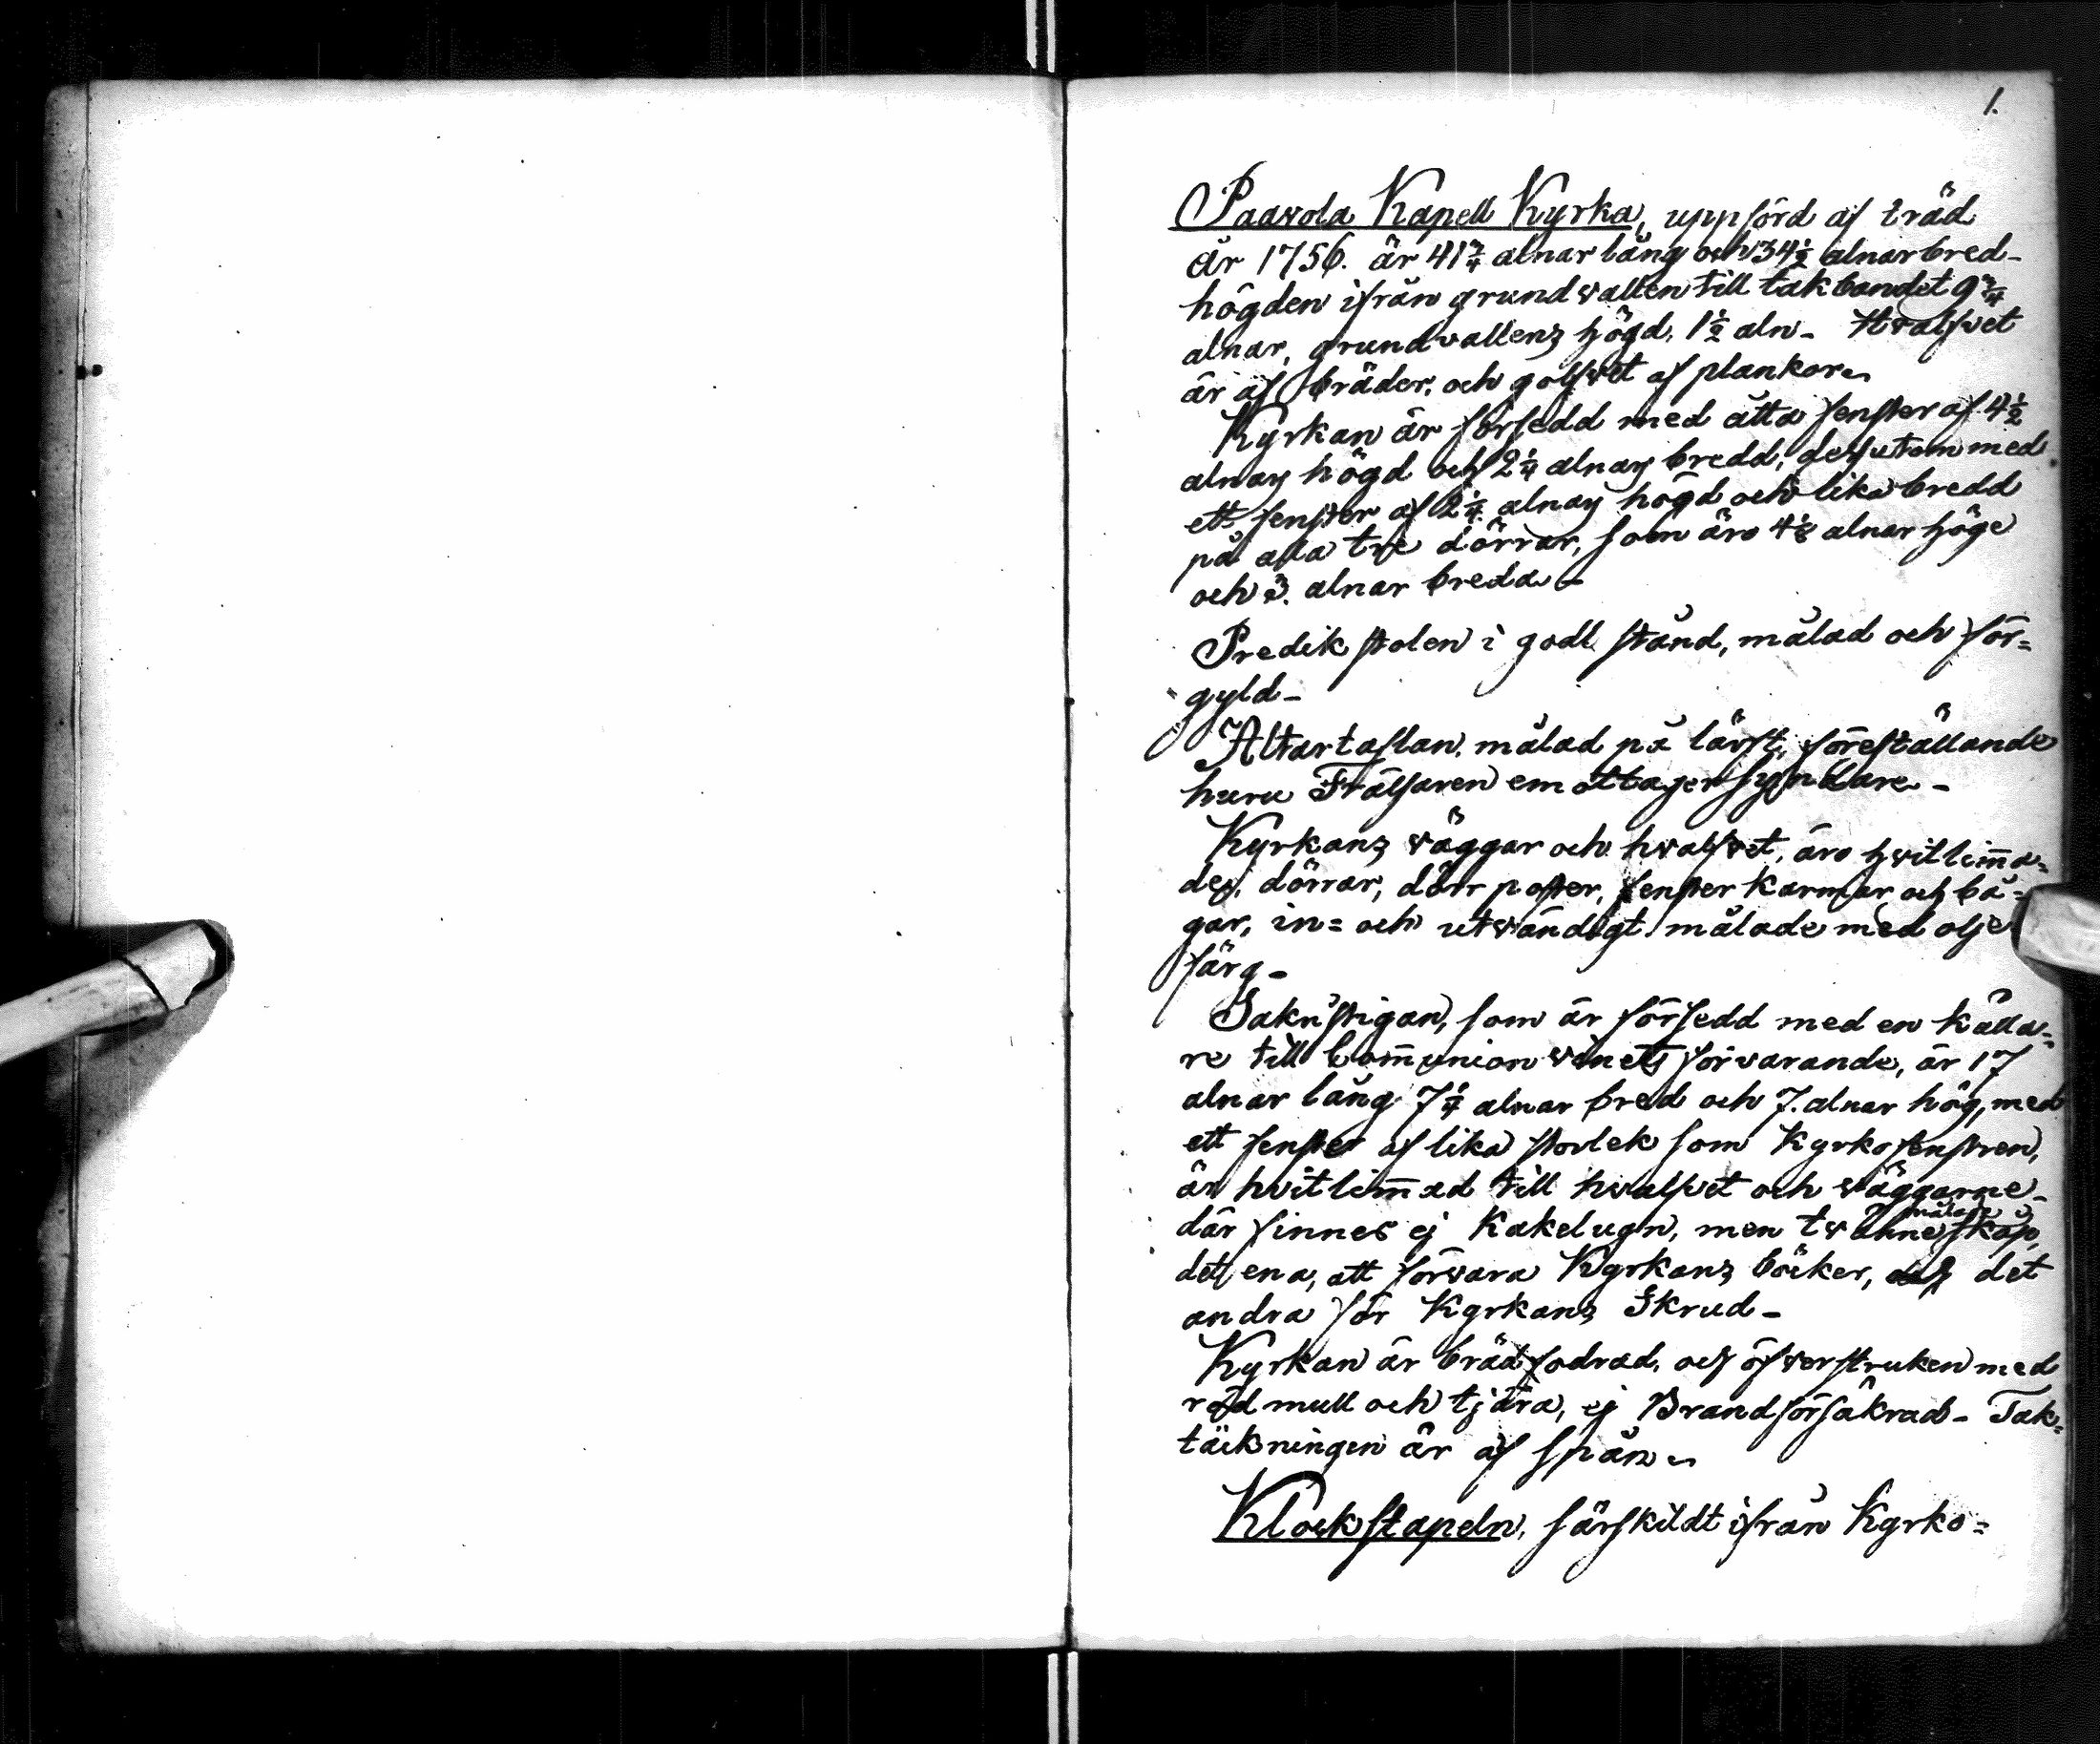 1.
Paavola Kapell Kyrka, uppförd af träd
år 1756. är 41 3/4 alnar lång och 34 1/2 alnar bred_
högden ifrån grundvallen till takbandet 9 3/4
alnar, grundvallens högd, 1 1/2 aln_ Hvalfvet
är af bräder, och golfvet af plankor_
Kyrkan är försedd med åtta fenster af 4 1/2
alnars högd och 2 1/4 alnars bredd, dessutom med
ett fenster af 2 1/4 alnars högd och lika bredd
på alla tre dörrar, som äro 4 1/2 alnar höge
och 3. alnar breda_
Predikstolen i godt stånd, målad och för=
gyld_
Altartaflan, målad på lärft, föreställande
huru Frälsaren emottager syndare_
Kyrkans väggar och hvalfvet, äro hvitlimma=
des, dörrar, dörrposter, fenster karmar och bå=
gar, in= och utvändigt målade med olje
färg_
Sakristigan, som är försedd med en källa=
re till Communion vinets förvarande, är 17
alnar lång 7 1/4 alnar bred och 7. alnar hög, med
ett fenster af lika storlek som Kyrkofenstren,
är hvitlimmad till hvalfvet och väggarne_
där finnes ej Kakelugn, men tvänne målade skåp,
det ena, att förvara Kyrkans böcker, och det
andra för Kyrkans Skrud_
Kyrkan är brädfodrad, och öfverstruken med
rödmull och tjära, ej Brandförsäkrad_ Tak=
täckningen är af spån_
Klockstapeln, särskildt ifrån Kyrko=